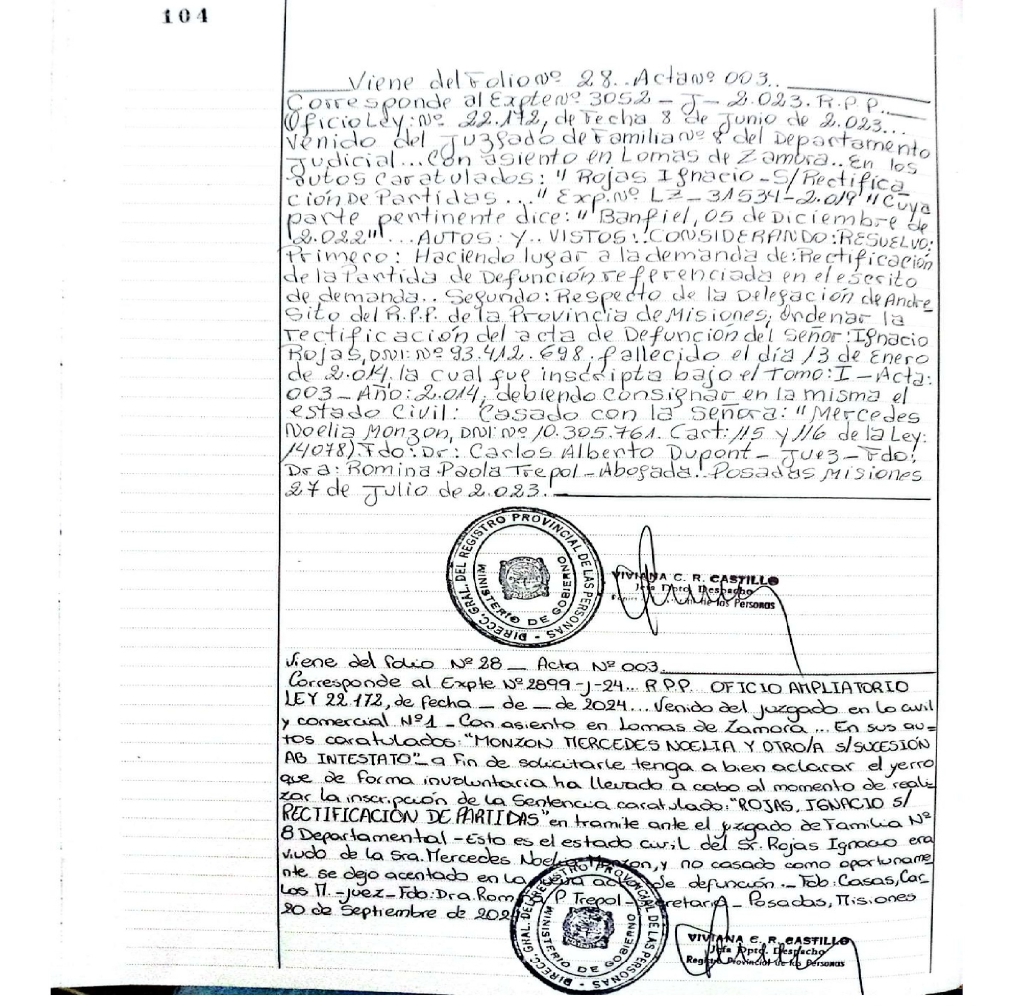 104
Viene del Folio Nº 28.. Acta Nº 003..
Corresponde al Expte Nº 3052 - J - 2.023. R.P.P..
Oficio Ley: Nº 22.172, de Fecha 8 de Junio de 2.023...
Venido del Juzgado de Familia Nº 8 del Departamento
Judicial... Con asiento en Lomas de Zamora.. En los
autos Caratulados: "Rojas Ignacio - S/Rectifica_
ción De Partidas..." Exp. Nº LZ - 31534 - 2.019 "Cuya
parte pertinente dice: "Banfiel, 05 de Diciembre de
2.022"... AUTOS: Y.. VISTOS:. CONSIDERANDO: RESUELVO:
Primero: Haciendo lugar a la demanda de: Rectificación
de la Partida de Defunción referenciada en el escrito
de demanda.. Segundo: Respecto de la Delegación de Andre_
sito del R.P.P. de la Provincia de Misiones, Ordenar la
rectificación del acta de Defunción del Señor: Ignacio
Rojas, DNI: Nº 93.412.698. fallecido el día 13 de Enero
de 2.014, la cual fue inscripta bajo el Tomo: I - Acta:
003 - Año: 2.014, debiendo consignar en la misma el
estado Civil: Casado con la Señora: "Mercedes
Noelia Monzon, DNI: Nº 10.305.761. Cart: 115 y 116 de la Ley:
14078). Fdo: Dr: Carlos Alberto Dupont - Juez - Fdo:
Dra: Romina Paola Trepol - Abogada.. Posadas Misiones
27 de Julio de 2.023.
DIRECC. GRAL. DEL REGISTRO PROVINCIAL DE LAS PERSONAS -
MINISTERIO DE GOBIERNO
VIVIANA C. R. CASTILLO
Jefa Dpto. Despacho
de las Personas
Viene del Folio Nº 28 _ Acta Nº 003.
Corresponde al Expte Nº 2899-J-24... R.P.P. OFICIO AMPLIATORIO
LEY 22.172, de fecha _ de _ de 2024... Venido del juzgado en lo civil
y comercial Nº1 - Con asiento en Lomas de Zamora ... En sus au-
tos caratulados: "MONZON MERCEDES NOELIA Y OTRO/A S/SUCESIÓN
AB INTESTATO" _ a fin de solicitarle tenga a bien aclarar el yerro
que de forma involuntaria ha llevado a cabo al momento de reali-
zar la inscripción de la Sentencia caratulado: "ROJAS, IGNACIO S/
RECTIFICACIÓN DE PARTIDAS" en tramite ante el juzgado de Familia Nº
8 Departamental - Esto es el estado civil del Sr. Rojas Ignacio era
viudo de la Sra. Mercedes Noelia Monzon, y no casado como oportuname
nte se dejo acentado en la acta de defunción._ Fdo: Casas, Car
los M. - Juez - Fdo: Dra. Rom P Trepol - Secretaria _ Posadas, Misiones
20 de Septiembre de 202
DIRECC. GRAL. DEL REGISTRO PROVINCIAL DE LAS PERSONAS
MINISTERIO DE GOBIERNO
VIVIANA C. R. CASTILLO
Jefa Dpto. Despacho
Registro Provincial de las Personas